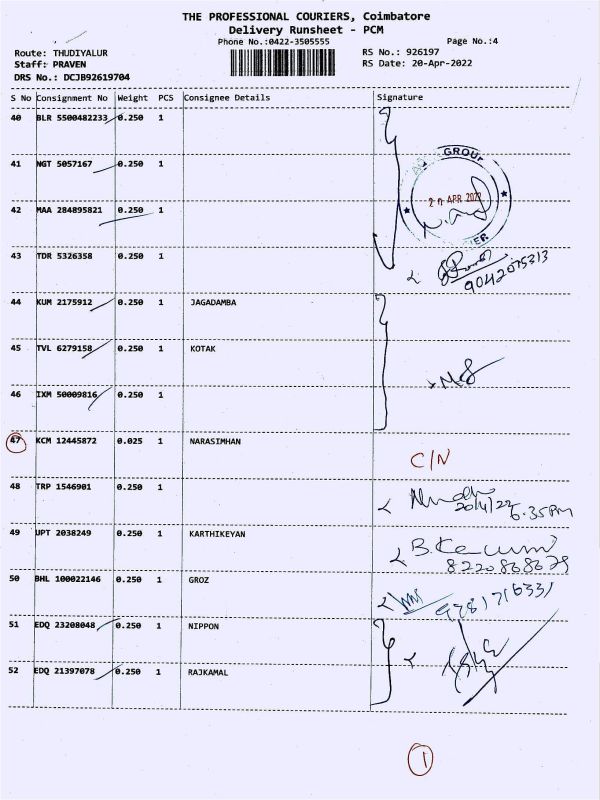 THE PROFESSIONAL COURIERS, Coimbatore
Delivery Runsheet - PCM
Phone No.:0422-3505555 Page No.:4
Route: THUDIYALUR RS No.: 926197
Staff: PRAVEN RS Date: 20-Apr-2022
DRS No.: DCJB92619704
S No Consignment No Weight PCS Consignee Details Signature
40 BLR 5500482233 0.250 1
GROUP
41 NGT 5057167 0.250 1
20 APR 2022
42 MAA 284895821 0.250 1
43 TDR 5326358 0.250 1
9042075313
44 KUM 2175912 0.250 1 JAGADAMBA
45 TVL 6279158 0.250 1 KOTAK
46 IXM 50009816 0.250 1
47 KCM 12445872 0.025 1 NARASIMHAN
C/N
48 TRP 1546901 0.250 1
20/4/22
6.35PM
49 UPT 2038249 0.250 1 KARTHIKEYAN
8220868679
50 BHL 100022146 0.250 1 GROZ
9781716331
51 EDQ 23208048 0.250 1 NIPPON
52 EDQ 21397078 0.250 1 RAJKAMAL
1